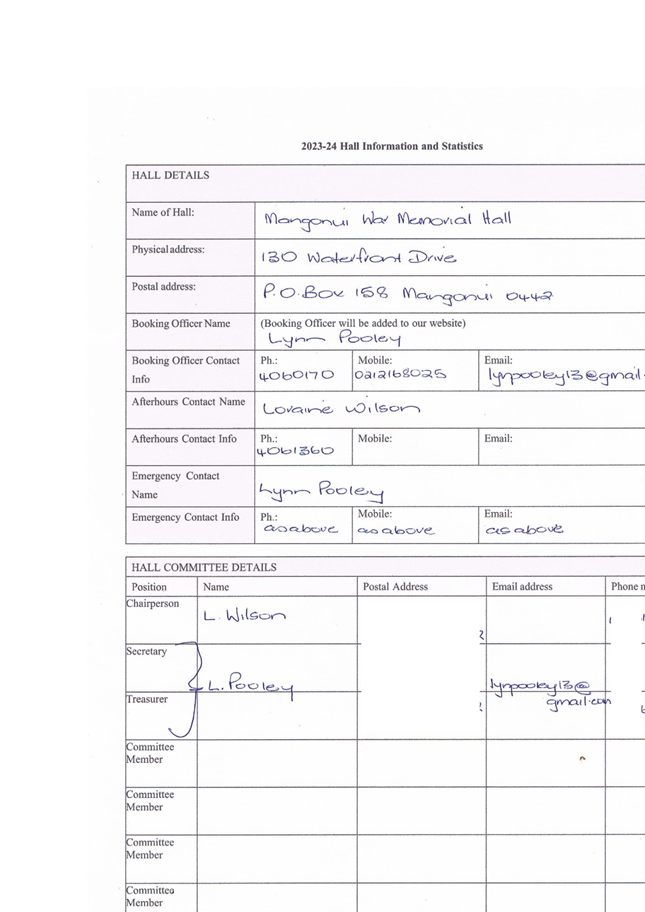 2023-24 Hall Information and Statistics
HALL DETAILS
Name of Hall: Mangonui War Memorial Hall
Physical address: 130 Waterfront Drive
Postal address: P.O. Box 158 Mangonui 0442
Booking Officer Name (Booking Officer will be added to our website)
Lynn Pooley
Booking Officer Contact Ph.: Mobile: Email:
Info 4060170 0212168025 lynpooley13@gmail.
Afterhours Contact Name Loraine Wilson
Afterhours Contact Info Ph.: Mobile: Email:
4061360
Emergency Contact
Name Lynn Pooley
Emergency Contact Info Ph.: Mobile: Email:
as above as above as above
HALL COMMITTEE DETAILS
Position Name Postal Address Email address Phone n
Chairperson
L. Wilson
Secretary
L. Pooley lynpooley13@
Treasurer gmail.com
Committee
Member
Committee
Member
Committee
Member
Committee
Member